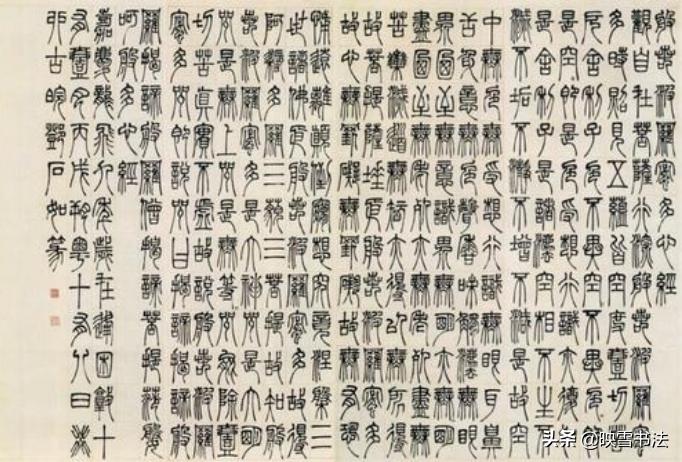 般若波羅蜜多心經
觀自在菩薩行深般若波羅蜜
多時照見五蘊皆空度壹切苦
厄舍利子色不異空不異色即
是空即是色受想行識亦復如
是舍利子是諸法空相不生不
滅不垢不淨不增不減是故空
中無色無受想行識無眼耳鼻
舌身意無色聲香味觸法無眼
界乃至無意識界無明亦無明
盡乃至無老死亦無老死盡無
苦集滅道無智亦得以無所得
故菩提薩埵依般若波羅蜜多
故心無罣礙無罣礙故無有恐
怖遠離顛倒夢想究竟涅槃三
世諸佛依般若波羅蜜多故得
阿耨多羅三藐三菩提故知般
若波羅蜜多是大神咒是大明
咒是無上咒是無等咒能除壹
切苦真實不虛故說般若波羅
蜜多咒即說咒曰揭諦揭諦般
羅揭諦般羅僧揭諦菩提薩婆
呵般多心經
嘉慶龍飛九年歲在逢困敦十
有壹月丙戌朔粵十有八日
古皖鄧石如篆
头条 @映雪书法